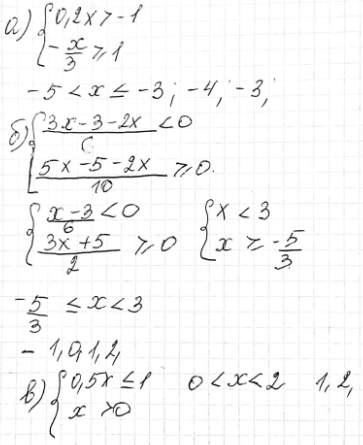 а) { 0,2x > -1
-x/3 ≥ 1
-5 < x ≤ -3; -4; -3;
б) { (3x-3-2x)/6 < 0
(5x-5-2x)/10 ≥ 0.
{ (x-3)/6 < 0 { x < 3
(3x+5)/2 ≥ 0 x ≥ -5/3
-5/3 ≤ x < 3
-1,0,1,2,
в) { 0,5x ≤ 1 0 < x < 2 1,2,
x > 0